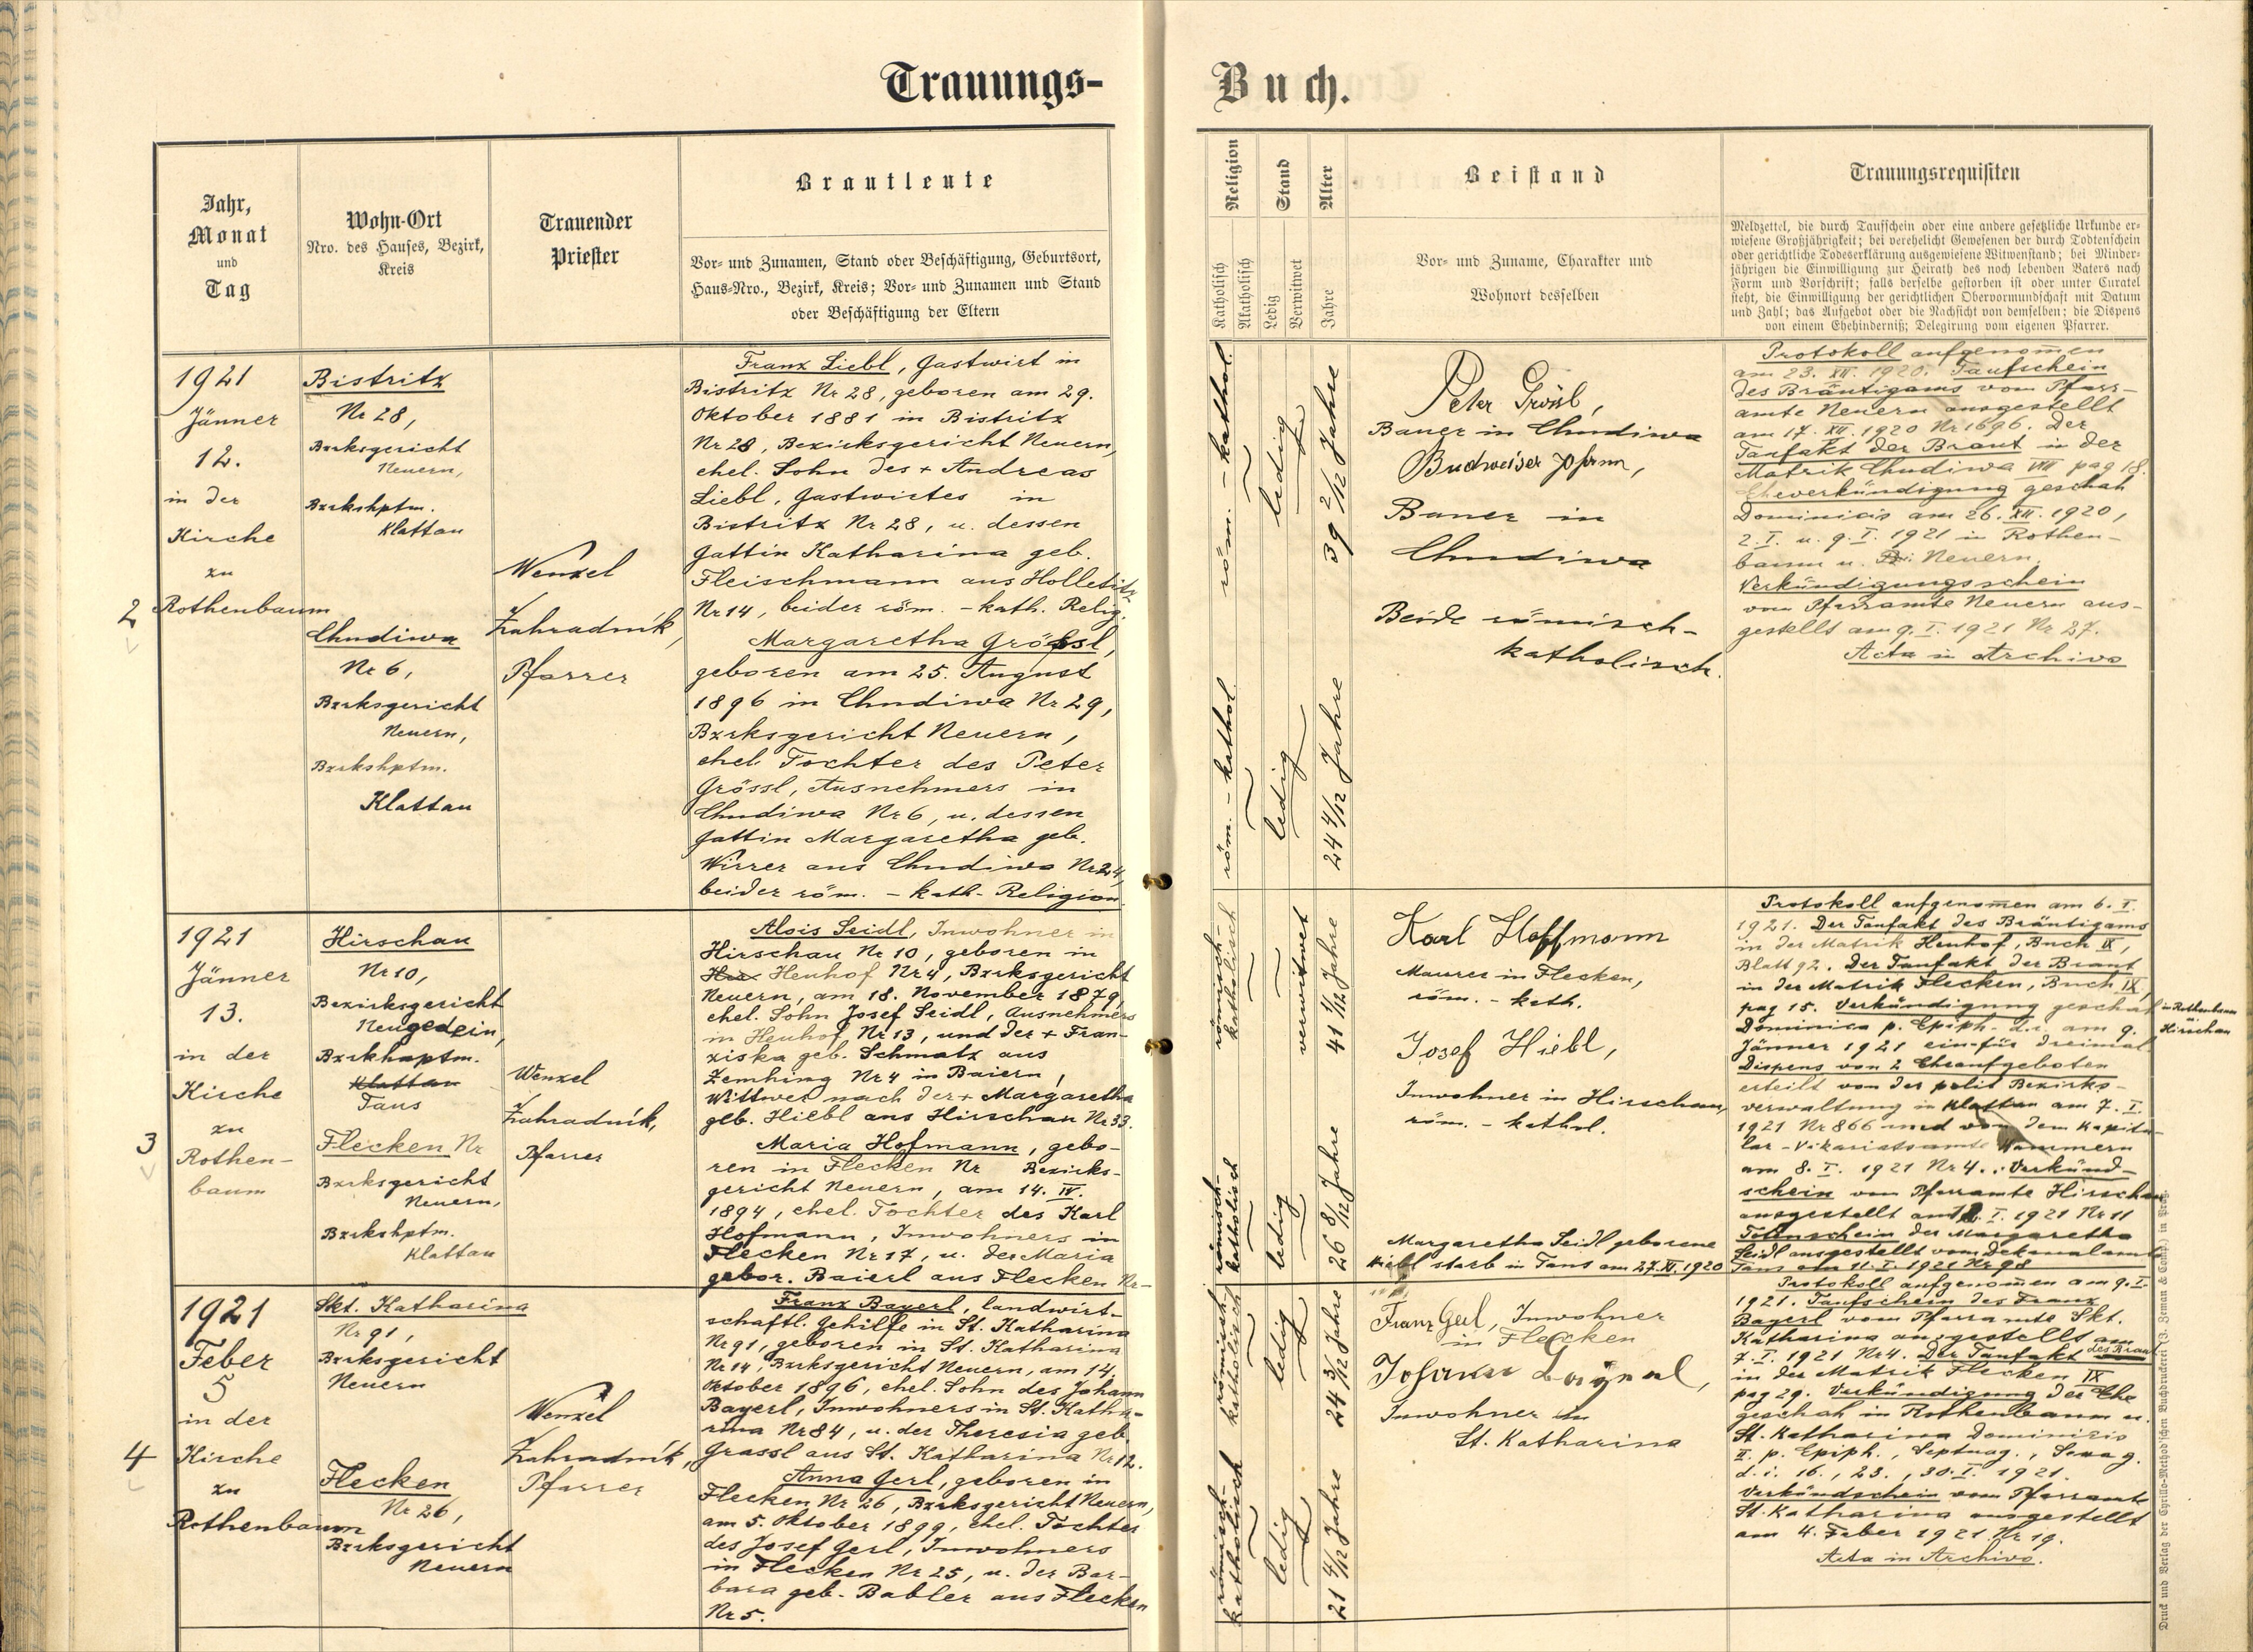 Trauungs-
Buch.
Jahr,
Monat
und
Tag
Wohn-Ort
Nro. des Hauses, Bezirk,
Kreis
Trauender
Priester
Brautleute
Vor- und Zunamen, Stand oder Beschäftigung, Geburtsort,
Haus-Nro., Bezirk, Kreis; Vor- und Zunamen und Stand
oder Beschäftigung der Eltern
Religion
Katholisch
Akatholisch
Stand
Ledig
Verwitwet
Alter
Jahre
Beistand
Vor- und Zuname, Charakter und
Wohnort desselben
Trauungsrequisiten
Meldzettel, die durch Taufschein oder eine andere gesetzliche Urkunde er-
wiesene Großjährigkeit; bei verehelicht Gewesenen der durch Todtenschein
oder gerichtliche Todeserklärung ausgewiesene Witwenstand; bei Minder-
jährigen die Einwilligung zur Heirath des noch lebenden Vaters nach
Form und Vorschrift; falls derselbe gestorben ist oder unter Curatel
steht, die Einwilligung der gerichtlichen Obervormundschaft mit Datum
und Zahl; das Aufgebot oder die Nachsicht von demselben; die Dispens
von einem Ehehinderniß; Delegirung vom eigenen Pfarrer.
2
1921
Jänner
12.
in der
Kirche
zu
Rothenbaum
Bistritz
Nr 28,
Bzrksgericht
Neuern,
Bzrkshptm.
Klattau
Chudiwa
Nr 6,
Bzrksgericht
Neuern,
Bzrkshptm.
Klattau
Wenzel
Zahradník,
Pfarrer
Franz Liebl, Gastwirt in
Bistritz Nr 28, geboren am 29.
Oktober 1881 in Bistritz
Nr 28, Bezirksgericht Neuern,
ehel. Sohn des + Andreas
Liebl, Gastwirtes in
Bistritz Nr 28, u. dessen
Gattin Katharina geb.
Fleischmann aus Holletitz
Nr 14, beider röm. - kath. Relig.
Margaretha Grössl,
geboren am 25. August
1896 in Chudiwa Nr 29,
Bzrksgericht Neuern,
ehel Tochter des Peter
Grössl, Ausnehmers in
Chudiwa Nr 6, u. dessen
Gattin Margaretha geb.
Wirrer aus Chudiwa Nr 24,
beider röm. - kath. Religion
röm. - kathol.
ledig
39 2/12 Jahre
röm. - kathol.
ledig
24 4/12 Jahre
Peter Grösl,
Bauer in Chudiwa
Budweiser Johann,
Bauer in
Chudiwa
Beide römisch-
katholisch.
Protokoll aufgenommen
am 23. XII. 1920. Taufschein
des Bräutigams vom Pfarr-
amte Neuern ausgestellt
am 17. XII. 1920 Nr 1696. Der
Taufakt der Braut in der
Matrik Chudiwa VIII pag 18.
Eheverkündigung geschah
Dominicis am 26. XII. 1920,
2. I. u. 9. I. 1921 in Rothen-
baum u. Neuern.
Verkündigungsschein
vom Pfarramte Neuern aus-
gestellt am 9. I. 1921 Nr 27.
Acta in Archivo
3
1921
Jänner
13.
in der
Kirche
zu
Rothen-
baum
Hirschau
Nr 10,
Bezirksgericht
Neugedein,
Bzrkhaptm.
Klattau
Taus
Flecken Nr
Bzrksgericht
Neuern,
Bzrkshptm.
Klattau
Wenzel
Zahradník,
Pfarrer
Alois Seidl, Inwohner in
Hirschau Nr 10, geboren in
Heuhof Nr 4, Bzrksgericht
Neuern, am 18. November 1879,
ehel. Sohn Josef Seidl, Ausnehmers
in Heuhof Nr 13, und der + Fran-
ziska geb. Schmatz aus
Zemhing Nr 4 in Baiern,
Wittwer nach der + Margaretha
geb. Hiebl aus Hirschau Nr 33.
Maria Hofmann, gebo-
ren in Flecken Nr Bezirks-
gericht Neuern, am 14. IV.
1894, ehel. Tochter des Karl
Hofmann, Inwohners in
Flecken Nr 17, u. der Maria
gebor. Baierl aus Flecken Nr -
römisch-
katholisch
verwitwet
41 1/12 Jahre
römisch-
katholisch
ledig
26 8/12 Jahre
Karl Hoffmann
Maurer in Flecken,
röm. - kath.
Josef Hiebl,
Inwohner in Hirschau,
röm. - kathol.
Margaretha Seidl geborene
Hiebl starb in Taus am 27. XI. 1920
Protokoll aufgenommen am 6. I.
1921. Der Taufakt des Bräutigams
in der Matrik Heuhof, Buch IX,
Blatt 92. Der Taufakt der Braut
in der Matrik Flecken, Buch IX,
pag 15. Verkündigung geschah in Rothenbaum
Dominica p. Epiph. d. i. am 9. u. Hirschau
Jänner 1921 ein-für dreimal.
Dispens von 2 Eheaufgeboten
erteilt von der polit Bezirks-
verwaltung in Klattau am 7. I.
1921 Nr 866 und von dem Kapitu-
lar - Vikariatsamte
am 8. I. 1921 Nr 4. Verkünd-
schein vom Pfarramte Hirschau
ausgestellt am I. 1921 Nr 11
Totenschein der Margaretha
Seidl ausgestellt vom Dekanalamte
Taus am 11. I. 1921 Nr 98
4
1921
Feber
5
in der
Kirche
zu
Rothenbaum
Skt. Katharina
Nr 91,
Bzrksgericht
Neuern
Flecken
Nr 26,
Bzrksgericht
Neuern
Wenzel
Zahradník,
Pfarrer
Franz Bayerl, landwirt-
schaftl. Gehilfe in St. Katharina
Nr 91, geboren in St. Katharina
Nr 14, Bzrksgericht Neuern, am 14.
Oktober 1896, ehel. Sohn des Johann
Bayerl, Inwohners in St. Katha-
rina Nr 84, u. der Theresia geb.
Grassl aus St. Katharina Nr 12.
Anna Gerl, geboren in
Flecken Nr 26, Bzrksgericht Neuern,
am 5. Oktober 1899, ehel. Tochter
des Josef Gerl, Inwohners
in Flecken Nr 25, u. der Bar-
bara geb. Babler aus Flecken
Nr 5.
römisch-
katholisch
ledig
24 3/12 Jahre
römisch-
katholisch
ledig
21 4/12 Jahre
Franz Gerl, Inwohner
in Flecken
Johann
Inwohner in
St. Katharina
Protokoll aufgenommen am 9. I.
1921. Taufschein des Franz
Bayerl vom Pfarramte Skt.
Katharina ausgestellt am
7. I. 1921 Nr 4. Der Taufakt des Braut
in der Matrik Flecken IX
pag 29. Verkündigung der Ehe
geschah in Rothenbaum u.
St. Katharina Dominicis
II. p. Epiph., Septuag., Sexag.
d. i. 16., 23., 30. I. 1921.
Verkündschein vom Pfarramte
St. Katharina ausgestellt
am 4. Feber 1921 Nr 19.
Acta in Archivo.
Druck und Verlag der Cyrillo-Method'schen Buchdruckerei (J. Zeman & Comp.) in Prag.